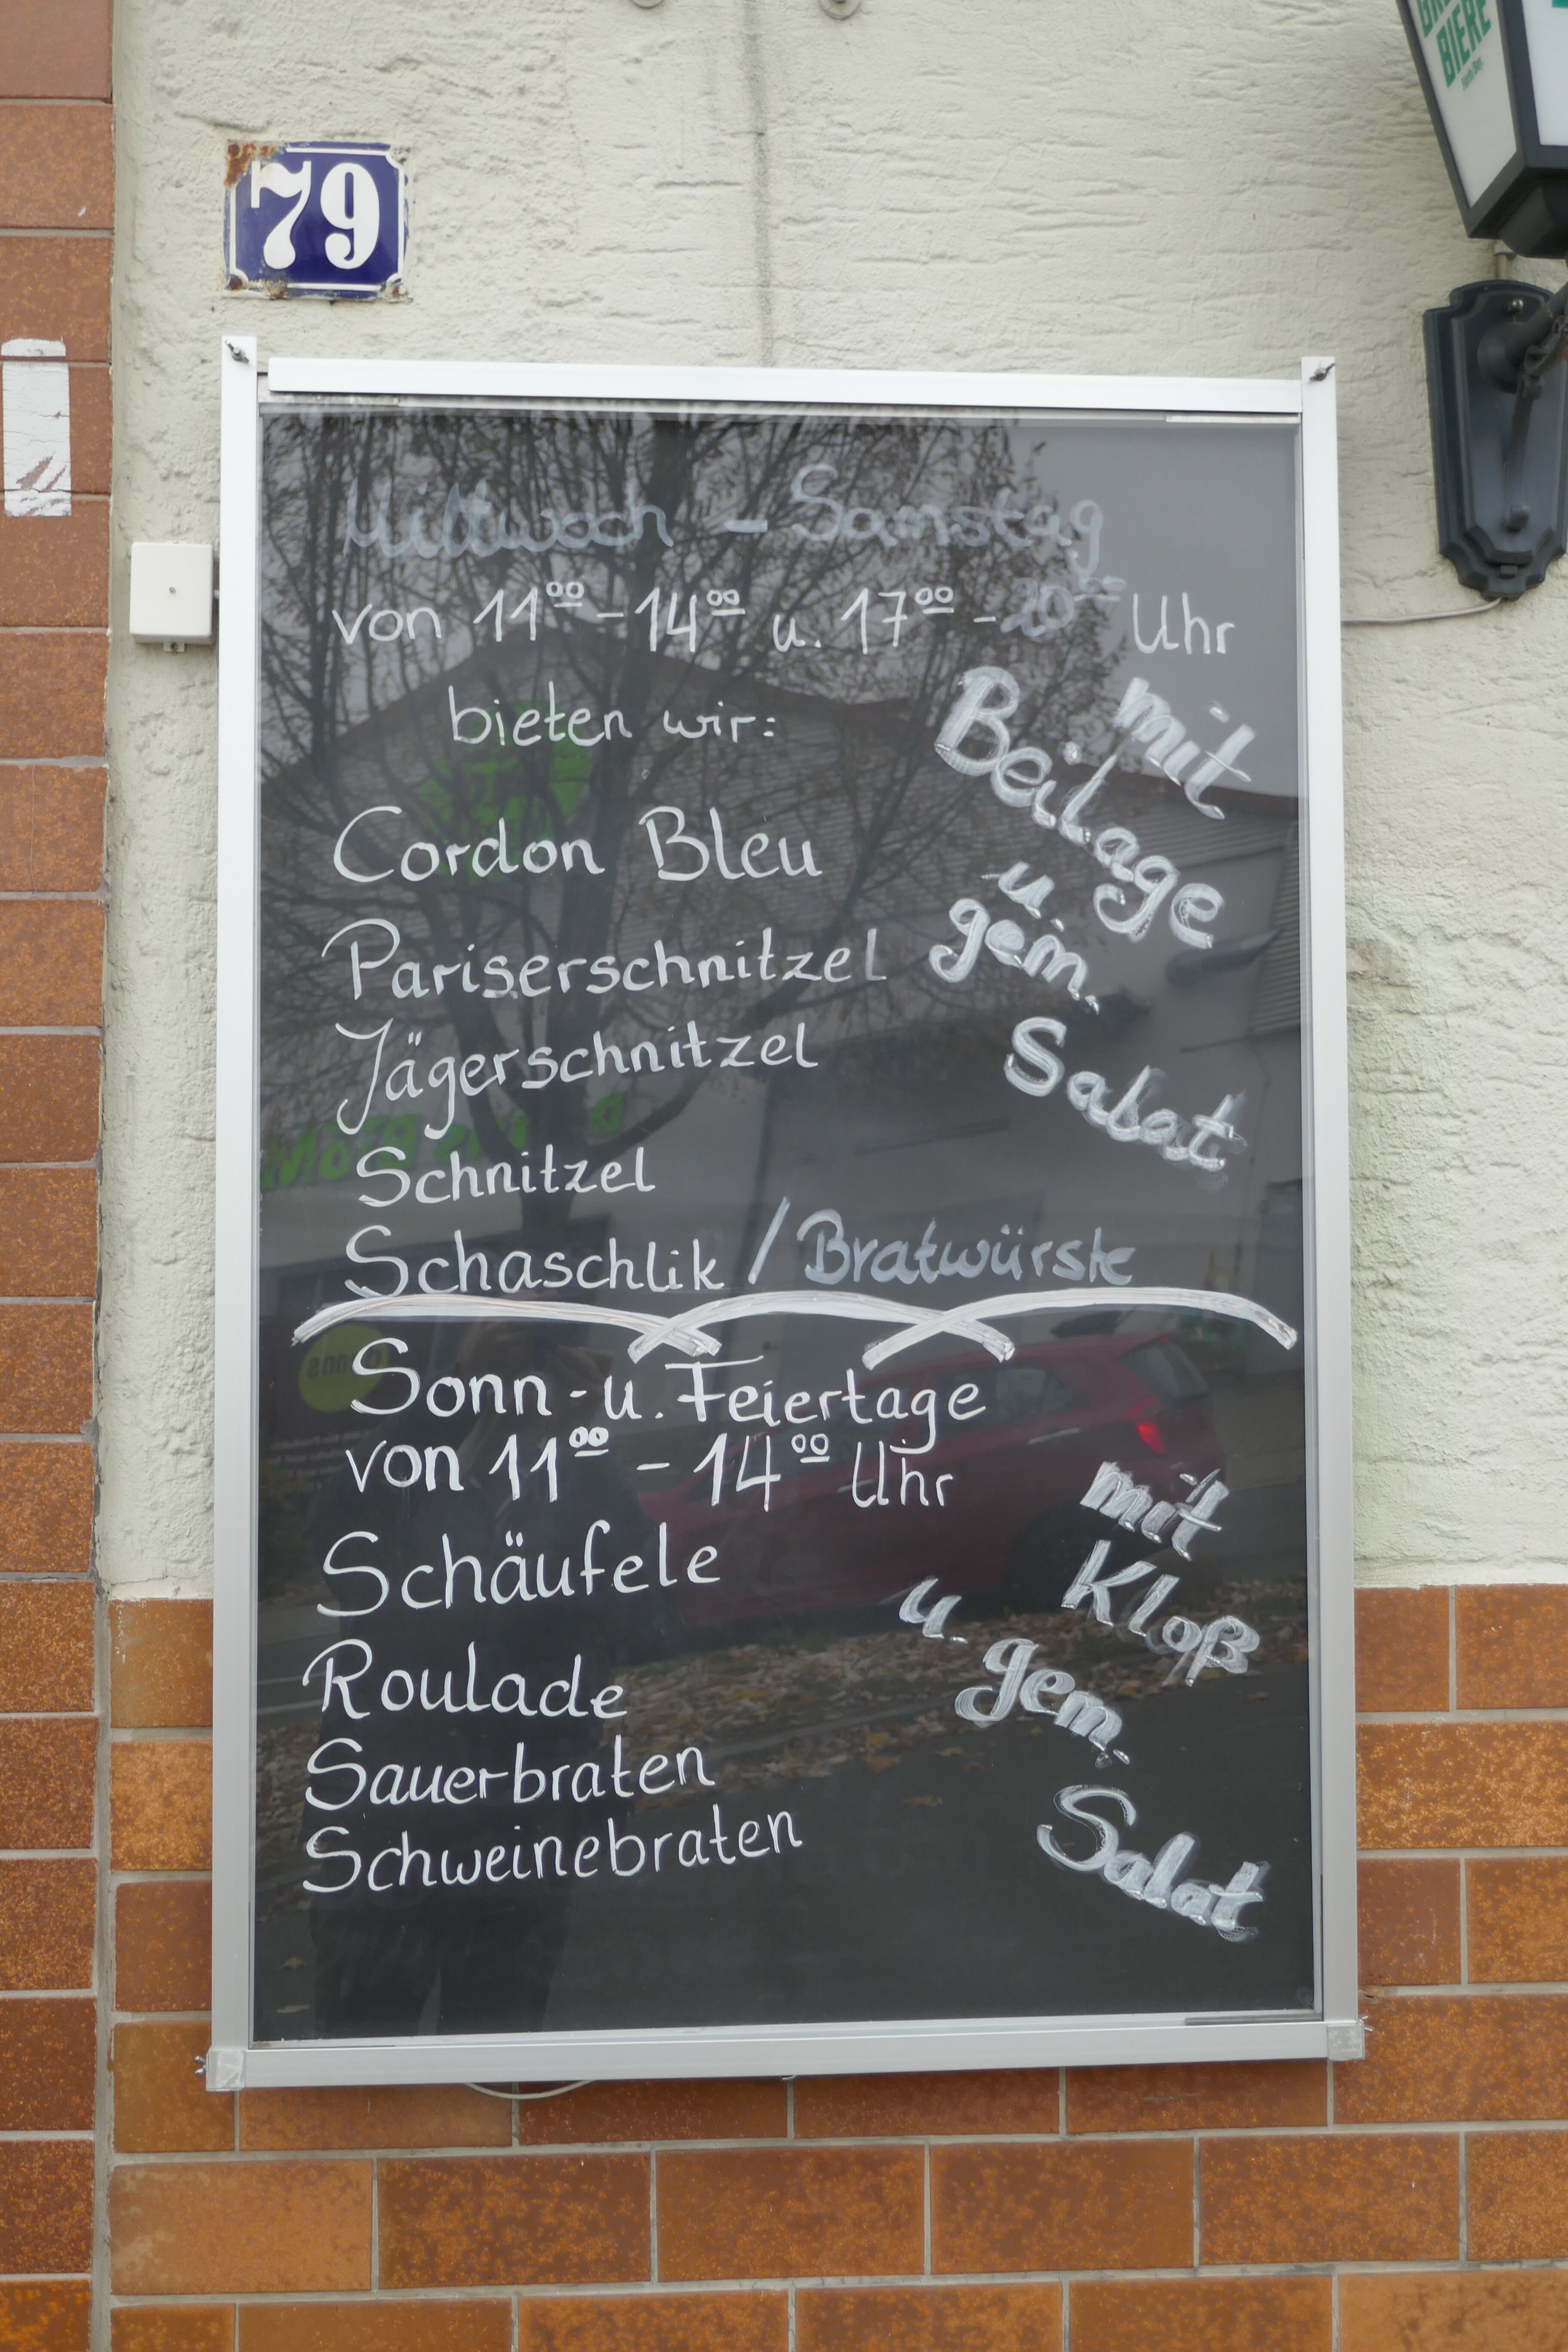 79
BIERE
Mittwoch - Samstag
von 11⁰⁰ - 14⁰⁰ u. 17⁰⁰ - 20⁰⁰ Uhr
bieten wir:
mit
Beilage
u.
gem.
Salat
Cordon Bleu
Pariserschnitzel
Jägerschnitzel
Schnitzel
Schaschlik / Bratwürste
Sonn- u. Feiertage
von 11⁰⁰ - 14⁰⁰ Uhr
Schäufele
Roulade
Sauerbraten
Schweinebraten
mit
Kloß
u. gem.
Salat